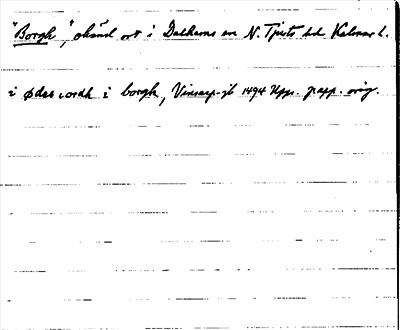 "Borgh", okänd ort i Dalhems sn N. Tjusts hd Kalmar l.
i ødas sordh i borgh, Vinsarp-jb 1494 Upps. papp. orig.